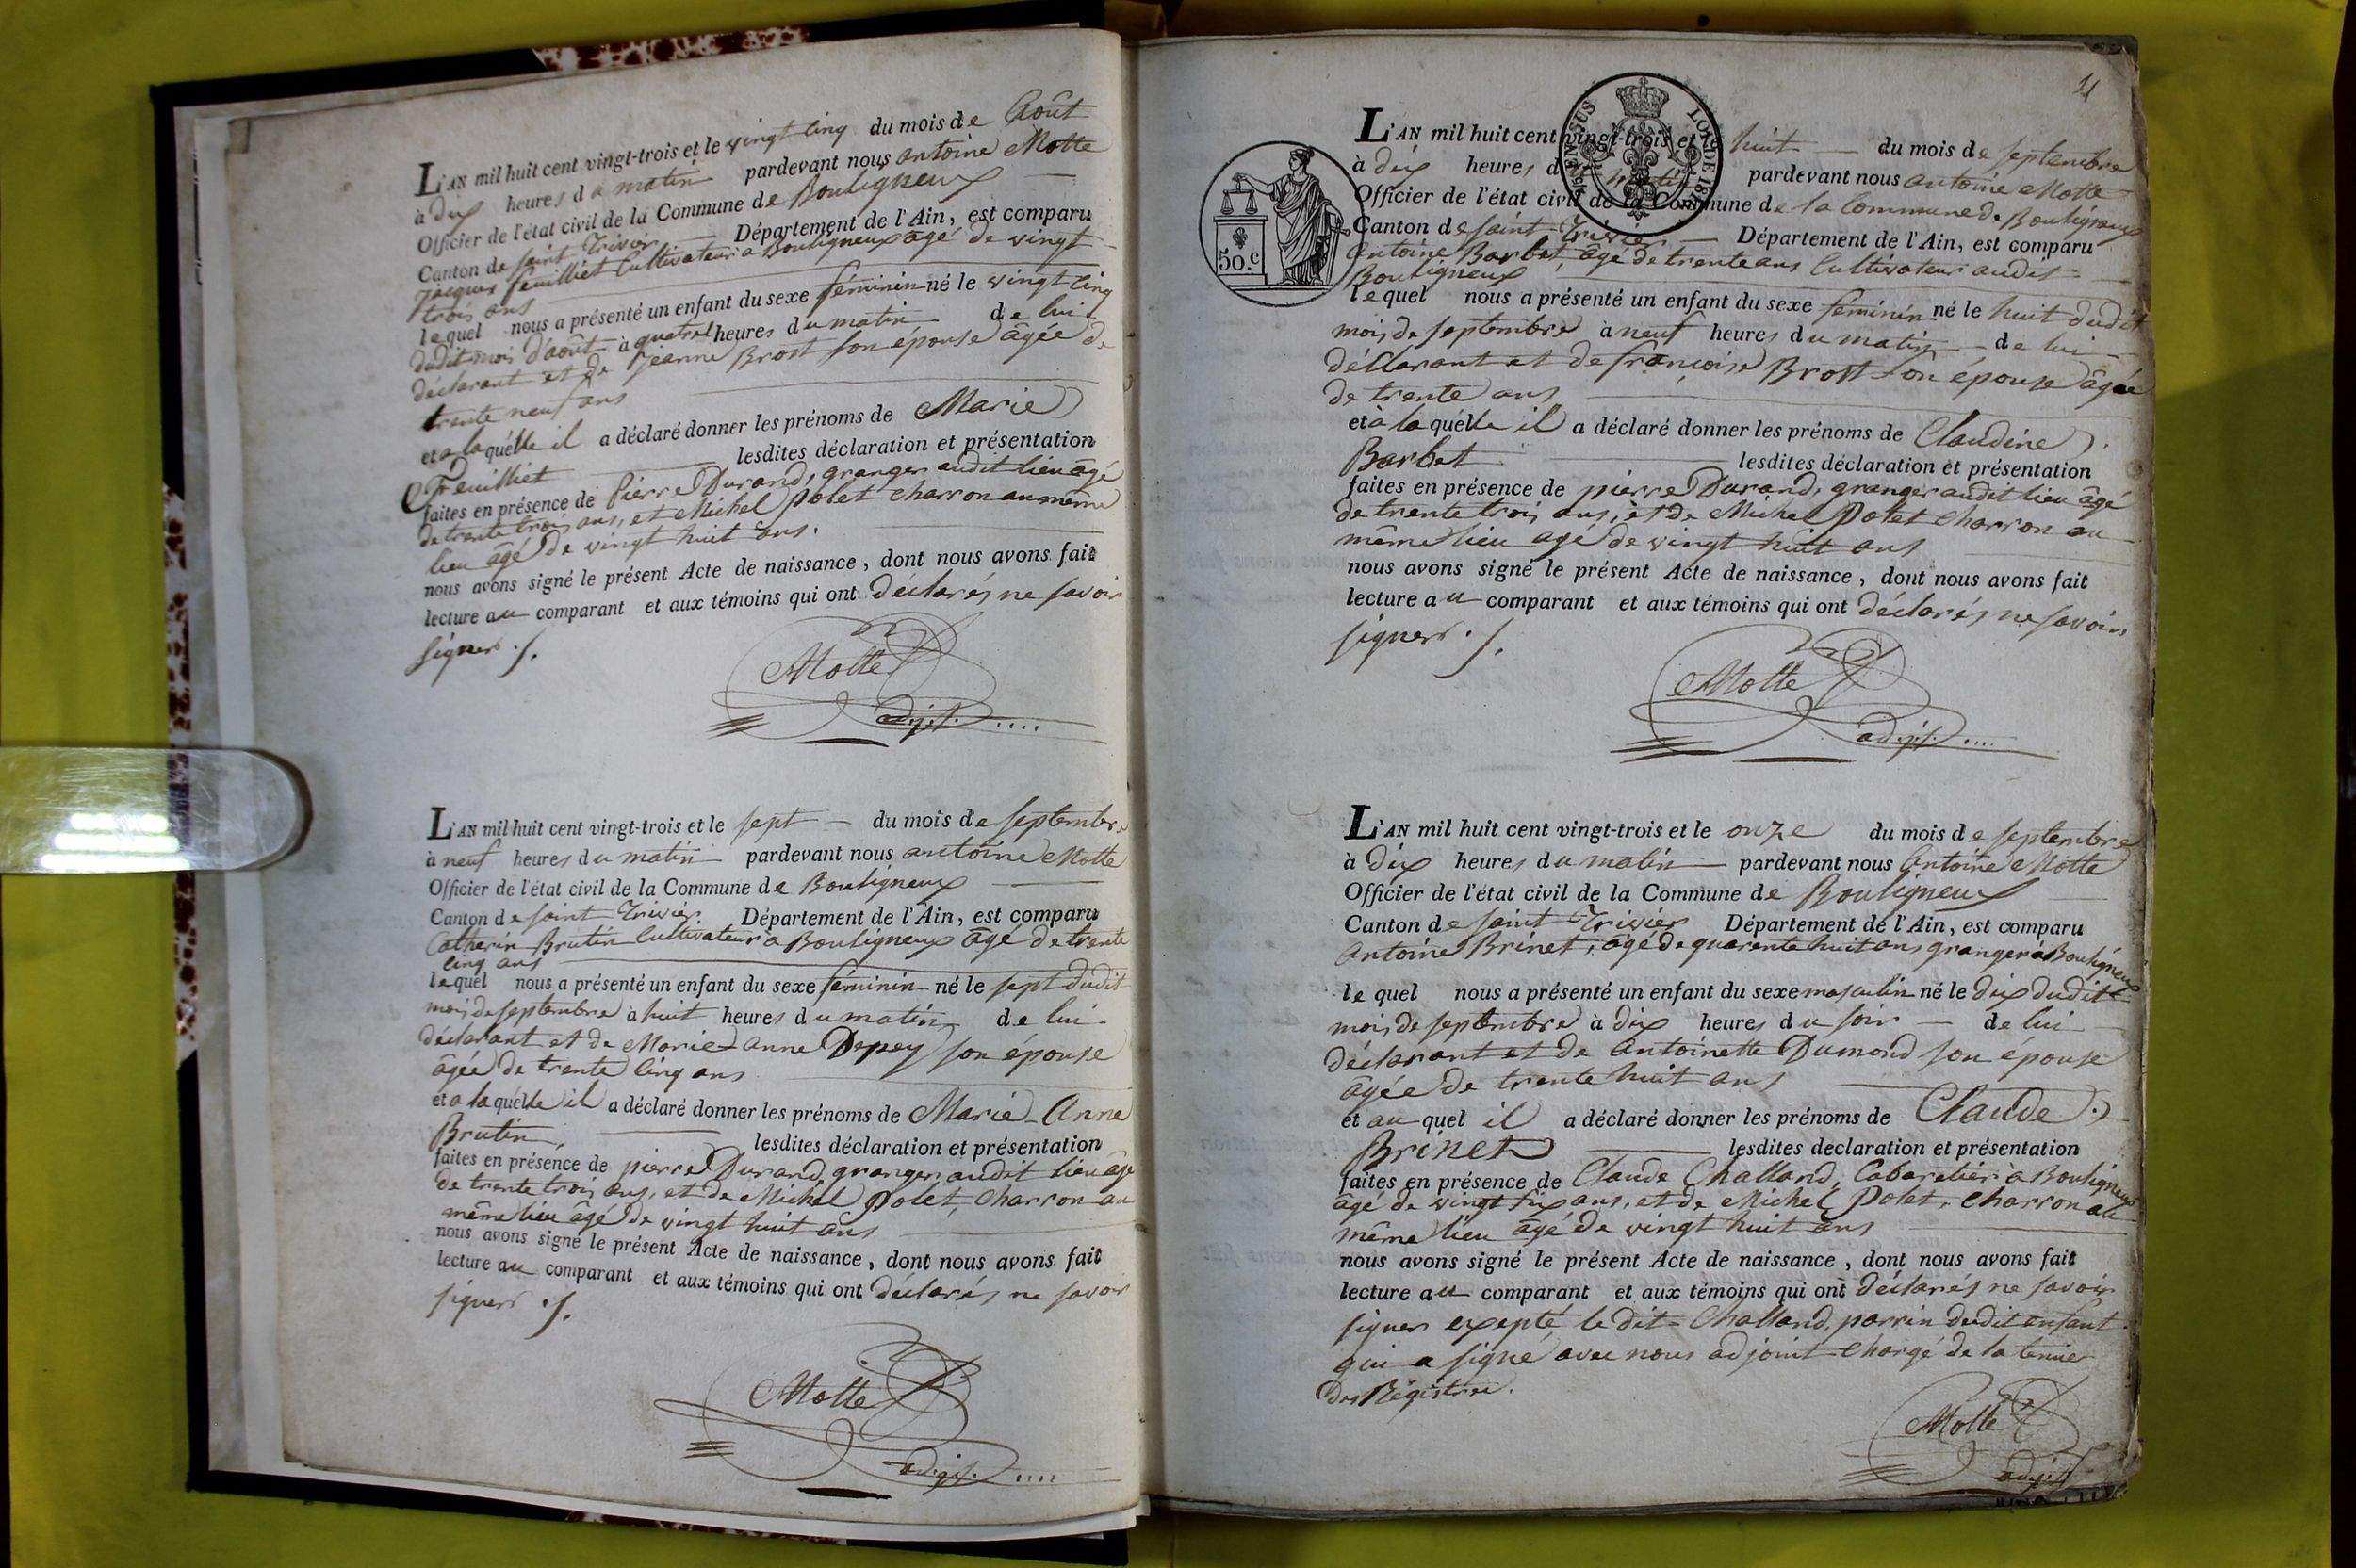 L'AN mil huit cent vingt-trois et le vingt cinq du mois de Août
à dix heures du matin pardevant nous antoine Motte
Officier de l'état civil de la Commune de Bouligneux
Canton de saint Trivier Département de l'Ain, est comparu
Jacques feuilliet Cultivateur à Bouligneux âgé de vingt
trois ans
lequel nous a présenté un enfant du sexe féminin né le vingt cinq
dudit mois d'août à quatre heures du matin de lui
déclarant et de Jeanne Brost son épouse âgée de
trente neuf ans
et a laquélle il a déclaré donner les prénoms de Marie
Feuilliet lesdites déclaration et présentation
faites en présence de Pierre Durand, granger audit lieu âgé
de trente trois ans, et Michel Polet charron au même
lieu âgé de vingt huit ans.
nous avons signé le présent Acte de naissance, dont nous avons fait
lecture au comparant et aux témoins qui ont déclarés ne savoir
signer ./.
Motte
adj.
L'AN mil huit cent vingt-trois et le sept du mois de septembre
à neuf heures du matin pardevant nous antoine Motte
Officier de l'état civil de la Commune de Bouligneux
Canton de saint Trivier. Département de l'Ain, est comparu
Catherin Brutin Cultivateur à Bouligneux âgé de trente
cinq ans
lequel nous a présenté un enfant du sexe féminin né le sept dudit
mois de septembre à huit heures du matin de lui
déclarant et de Marie-anne Depey son épouse
âgée de trente cinq ans
et a laquélle il a déclaré donner les prénoms de Marie-Anne
Brutin, lesdites déclaration et présentation
faites en présence de pierre Durand, granger audit lieu âgé
de trente trois ans, et de Michel Polet, charron au
même lieu âgé de vingt huit ans
nous avons signé le présent Acte de naissance, dont nous avons fait
lecture au comparant et aux témoins qui ont déclarés ne savoir
signer ./.
Motte
adj.
50.c
LOI DE
L'AN mil huit cent vingt-trois et huit du mois de septembre
à dix heures du matin pardevant nous antoine Motte
Officier de l'état civil de la Commune de la Commune de Bouligneux
Canton de saint Trivier Département de l'Ain, est comparu
Antoine Barbet, âgé de trente ans Cultivateur audit
Bouligneux
lequel nous a présenté un enfant du sexe féminin né le huit dudit
mois de septembre à neuf heures du matin de lui
déclarant et de françoise Brost son épouse âgée
de trente ans
et à laquélle il a déclaré donner les prénoms de Claudine
Barbet lesdites déclaration et présentation
faites en présence de pierre Durand, granger audit lieu âgé
de trente trois ans, et de Michel Polet charron au
même lieu âgé de vingt huit ans
nous avons signé le présent Acte de naissance, dont nous avons fait
lecture au comparant et aux témoins qui ont déclarés ne savoir
signer ./.
Motte
adj.
L'AN mil huit cent vingt-trois et le onze du mois de septembre
à dix heures du matin pardevant nous Antoine Motte
Officier de l'état civil de la Commune de Bouligneux
Canton de saint Trivier Département de l'Ain, est comparu
Antoine Brinet, âgé de quarente huit ans granger à Bouligneux
lequel nous a présenté un enfant du sexe masculin né le dix dudit
mois de septembre à dix heures du soir de lui
déclarant et de antoinette Dumond son épouse
âgée de trente huit ans
et au quel il a déclaré donner les prénoms de Claude
Brinet lesdites declaration et présentation
faites en présence de Claude Challand, Cabaretier à Bouligneux
âgé de vingt six ans, et de Michel Polet, charron au
même lieu âgé de vingt huit ans
nous avons signé le présent Acte de naissance, dont nous avons fait
lecture au comparant et aux témoins qui ont déclarés ne savoir
signer expepté le dit Challand, parrin dudit enfant
qui a signé avec nous adjoint chargé de la tenue
des Régistres.
Motte
adj.